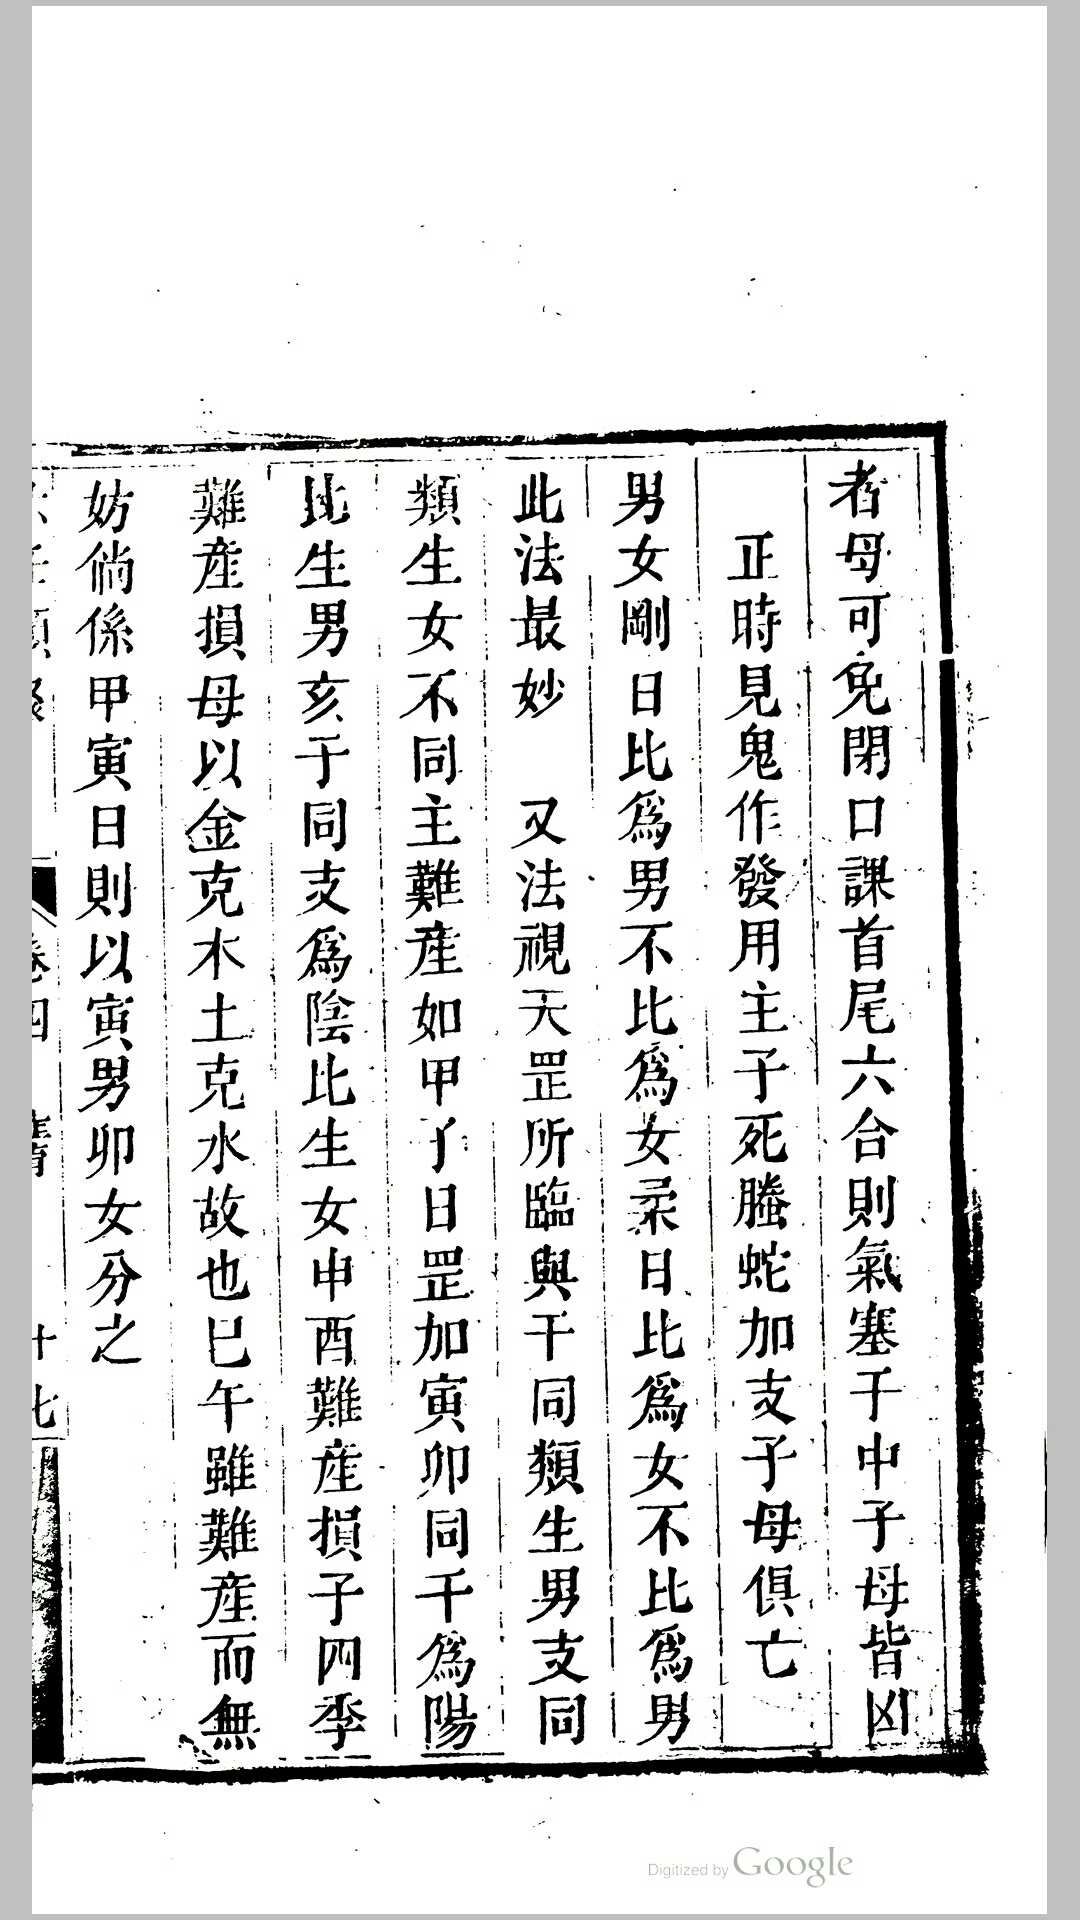 者母可免閉口課首尾六合則氣塞于中子母皆凶
正時見鬼作發用主子死螣蛇加支子母俱亡
男女剛日比爲男不比爲女柔日比爲女不比爲男
此法最妙　又法視天罡所臨與干同類生男支同
類生女不同主難產如甲子日罡加寅卯同干爲陽
比生男亥于同支爲陰比生女申酉難產損子四季
難產損母以金克木土克水故也巳午雖難產而無
妨倘係甲寅日則以寅男卯女分之
卷四
十七
Digitized by Google